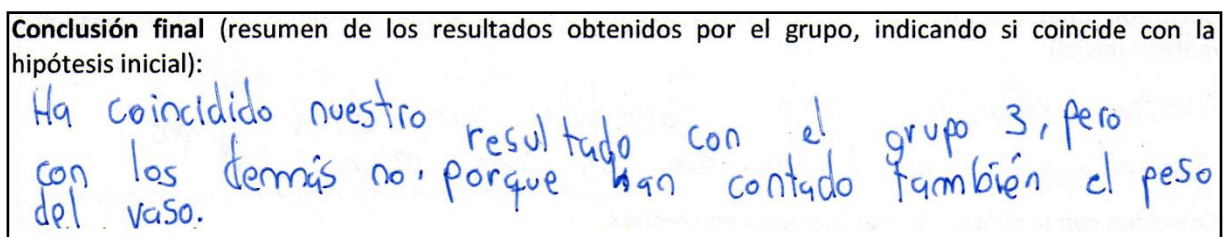 Conclusión final (resumen de los resultados obtenidos por el grupo, indicando si coincide con la
hipótesis inicial):
Ha coincidido nuestro resultado con el grupo 3, pero
con los demás no, porque han contado también el peso
del vaso.